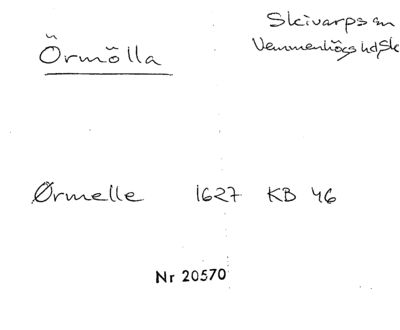 Skivarps sn
Örmölla
Vemmenhögs hd Sk
Ørmelle 1627 KB 46
Nr 20570